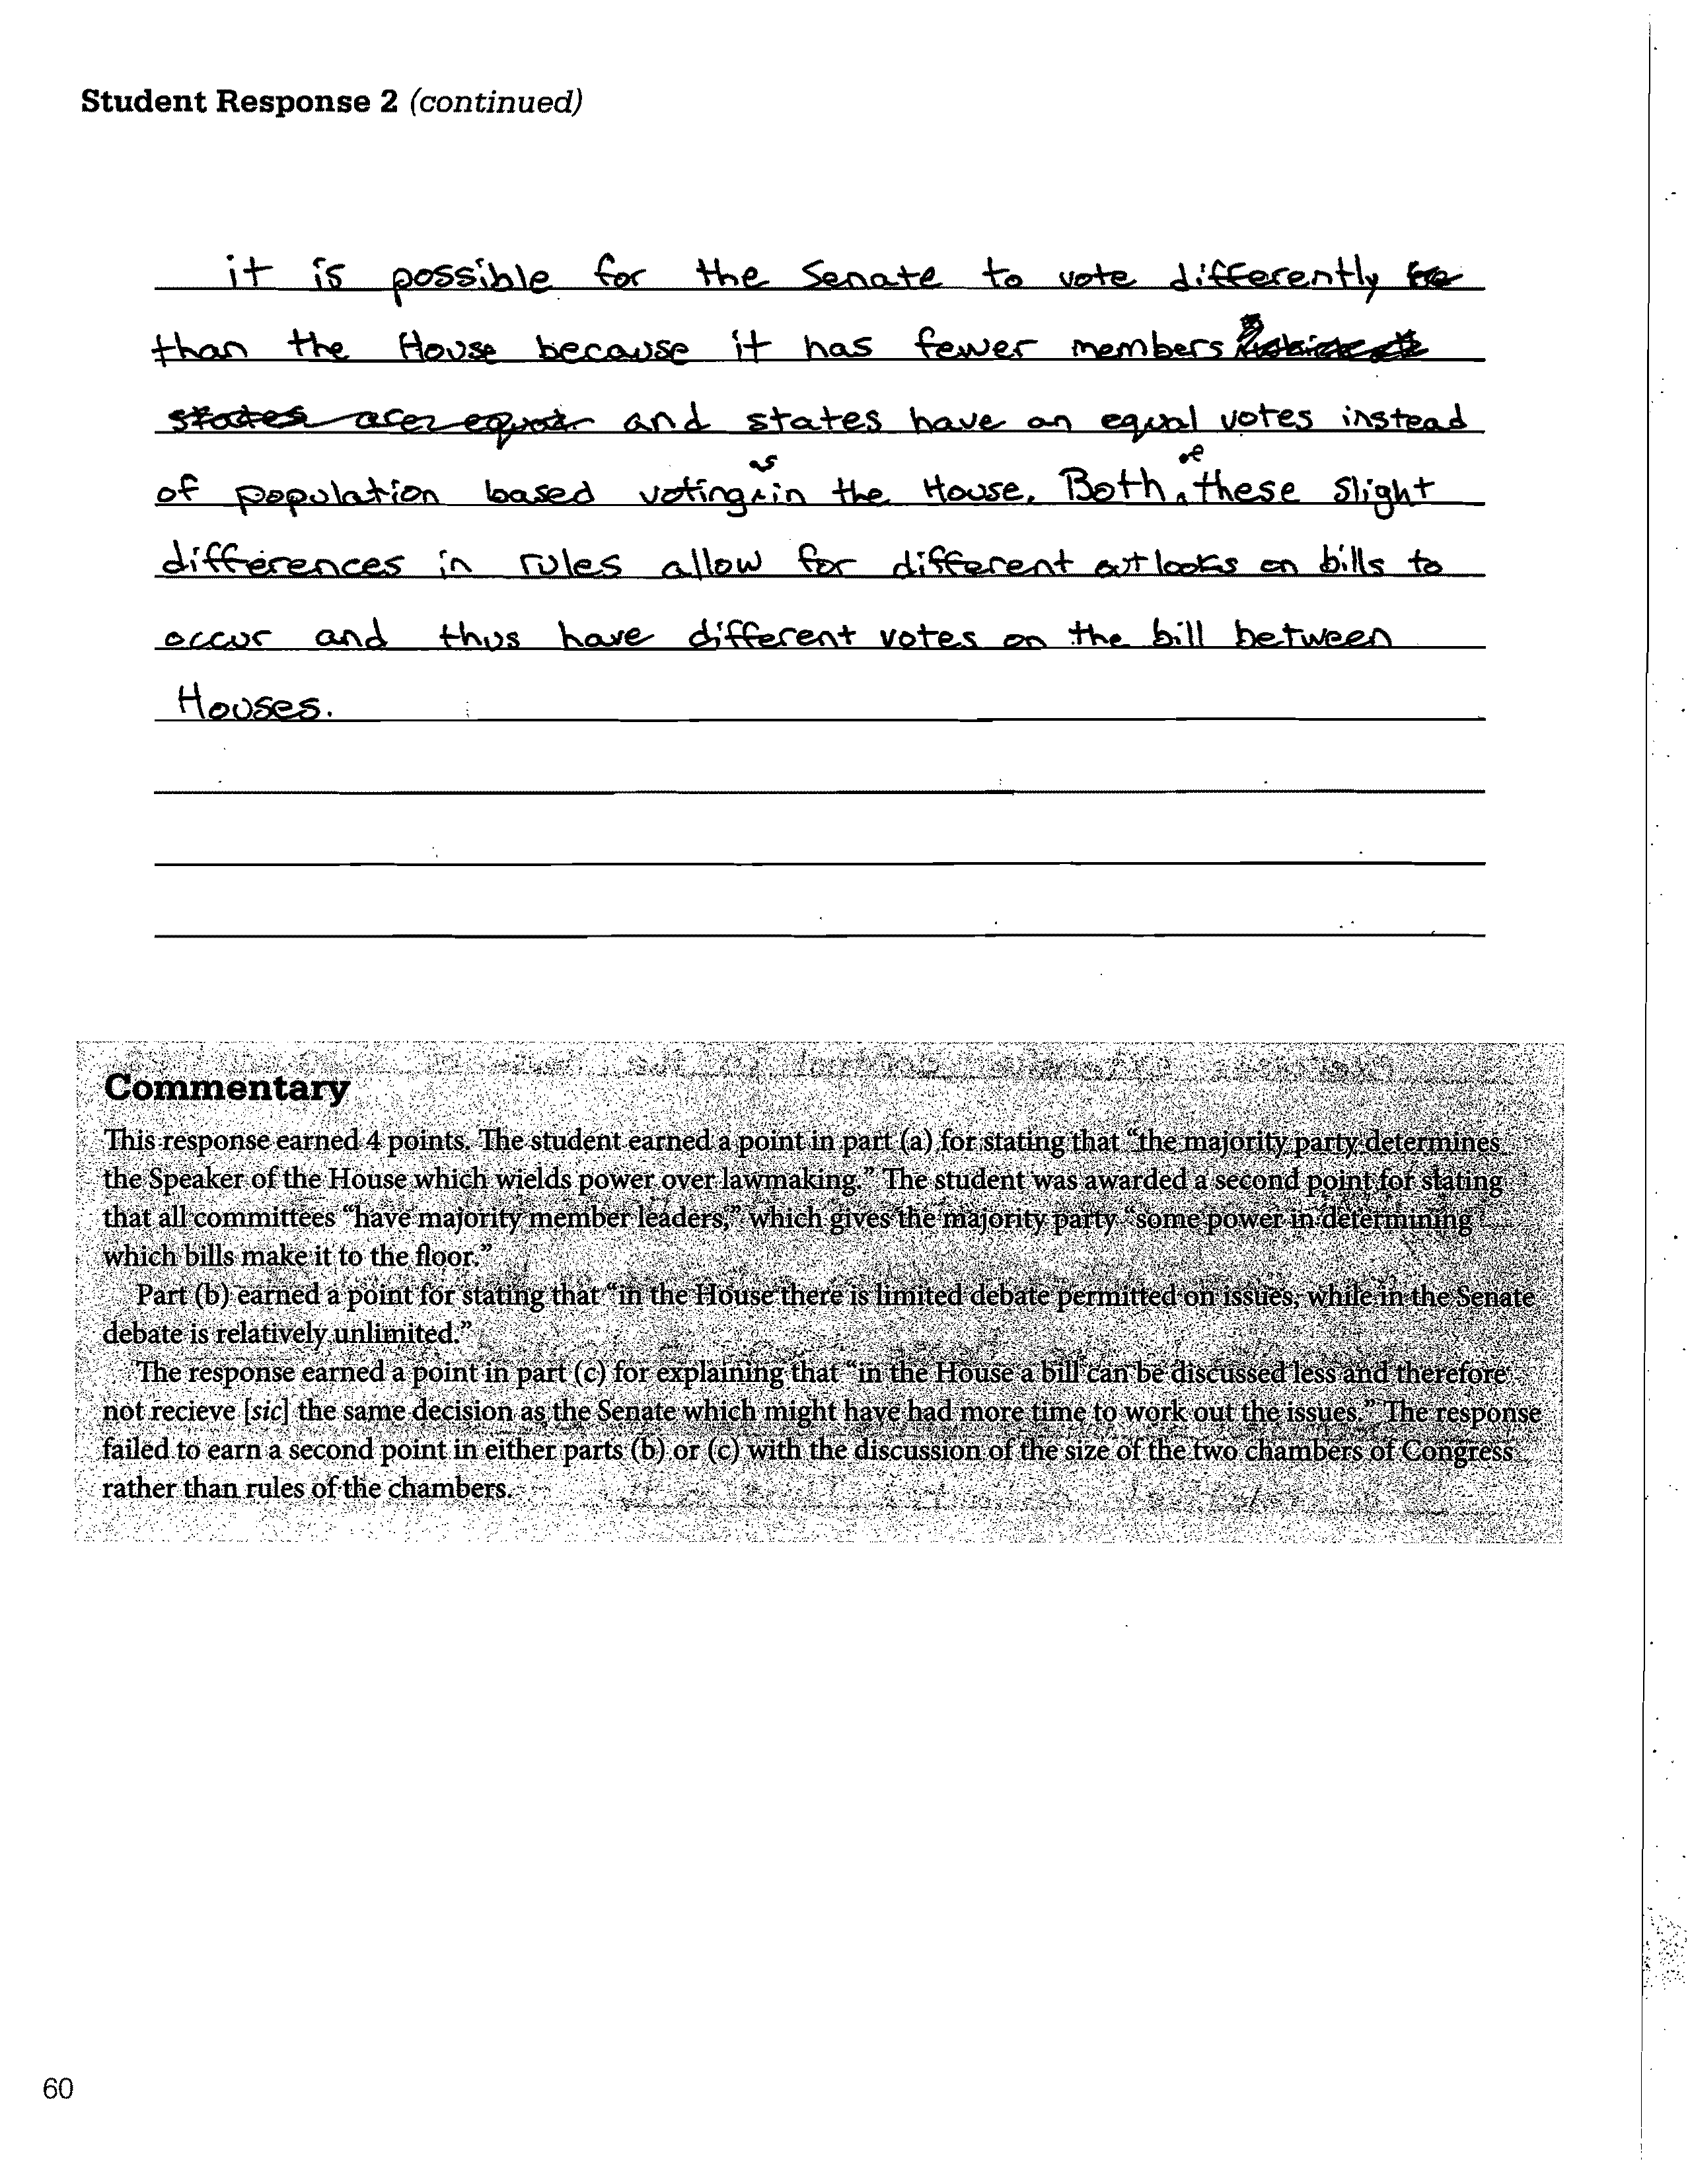 Student Response 2 (continued)
it is possible for the Senate to vote differently
than the House because it has fewer members
states are equal and states have an equal votes instead
of population based voting as in the House. Both of these slight
differences in rules allow for different outlooks on bills to
occur and thus have different votes on the bill between
Houses.
Commentary
This response earned 4 points. The student earned a point in part (a) for stating that “the majority party determines
the Speaker of the House which wields power over lawmaking.” The student was awarded a second point for stating
that all committees “have majority member leaders,” which gives the majority party “some power in determining
which bills make it to the floor.”
Part (b) earned a point for stating that “in the House there is limited debate permitted on issues, while in the Senate
debate is relatively unlimited.”
The response earned a point in part (c) for explaining that “in the House a bill can be discussed less and therefore
not recieve [sic] the same decision as the Senate which might have had more time to work out the issues.” The response
failed to earn a second point in either parts (b) or (c) with the discussion of the size of the two chambers of Congress
rather than rules of the chambers.
60